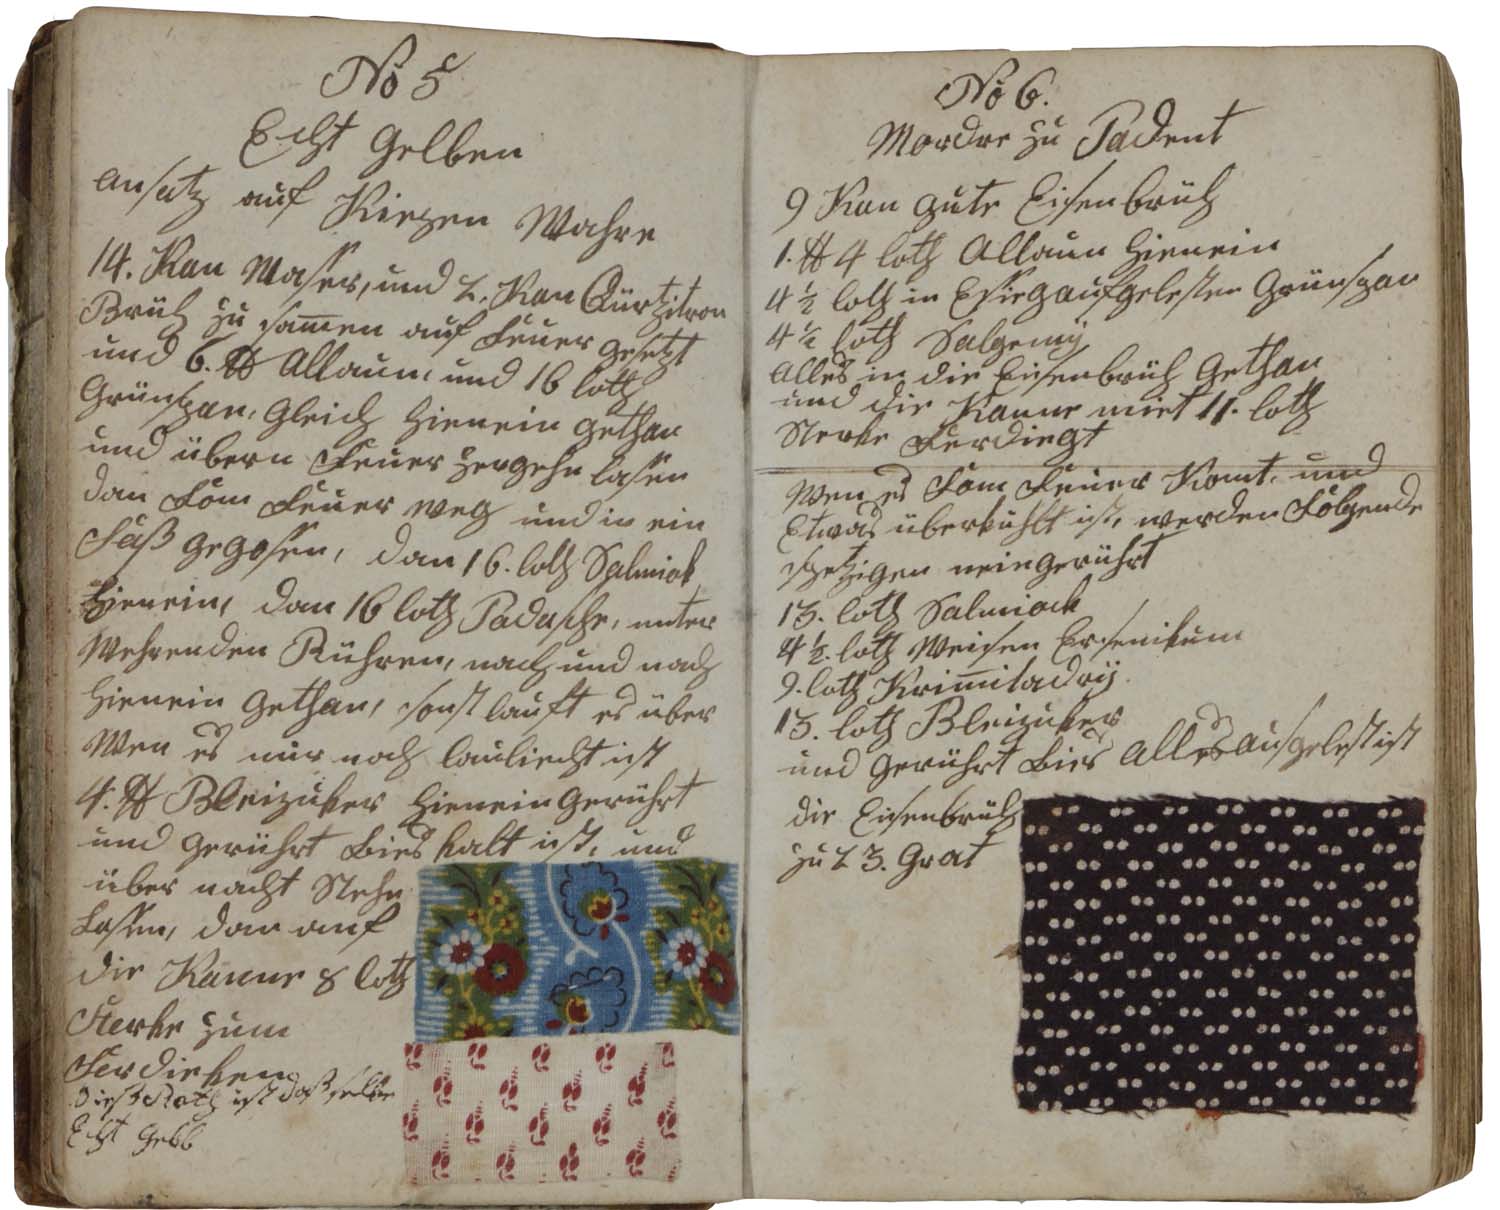 No 5
Echt Gelben
ansatz auf Riezen Wahre
14. Kan Wasser, und 2. Kan Qürtzitron
Brüh zu samen auf Feuer gesetzt
und 6. ℔ Allaun, und 16 loth
Grünspan, Gleich hienein gethan
und übern Feuer zergehn lassen
dan Fom Feuer weg und in ein
Faß gegossen, dan 16. loth Salmiak
hienein, dan 16 loth Padasche, unter
Wehrenden Rühren, nach und nach
hienein gethan, sonst lauft es über
Wen es nur noch laulicht ist
4. ℔ Bleizuker hienein gerührt
und gerührt bies kalt ist, und
über nacht Stehn
Lassen, dan auf
die Kanne 8 loth
Sterke zum
Ferdieken
dieß Roth ist daß selbe
Echt Gelb
No 6.
Mordre zu Padent
9 Kan gute Eisenbrüh
1. ℔ 4 loth Allaun hienein
4 ½ loth in Essieg aufgelesten Grünspan
4 ½ loth Salgemy
alles in die Eisenbrüh gethan
und die Kanne miet 11. loth
Sterke Ferdiegt
Wen es Fom Feuer Komt, und
Etwas überkühlt ist, werden Folgende
spetzigen neingerührt
13. loth Salmiack
4 ½. loth Weisen Ersenikum
9. loth Krimitadrÿ
13. loth Bleizuker
und gerührt bies alles aufgelest ist
die Eisenbrüh
zu 23. Grat